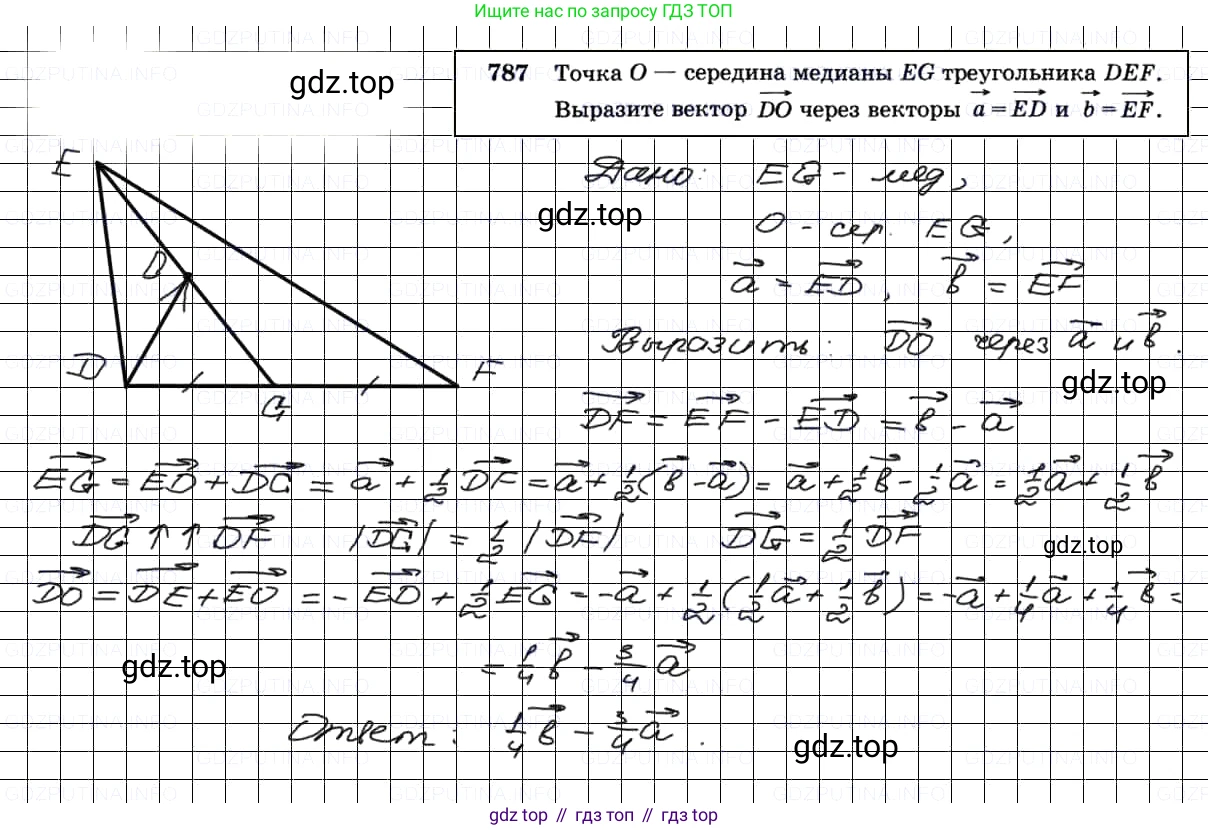 Ищите нас по запросу ГДЗ ТОП
GDZPUTINA.INFO
gdz.top
787 Точка O — середина медианы EG треугольника DEF.
Выразите вектор DO через векторы a = ED и b = EF.
E
D
D
G
F
Дано: EG - мед,
gdz.top
O - сер. EG,
a = ED, b = EF
Выразить: DO через a и b.
gdz.top
DF = EF - ED = b - a
EG = ED + DG = a + 1/2 DF = a + 1/2(b - a) = a + 1/2 b - 1/2 a = 1/2 a + 1/2 b
DG ↑↑ DF |DG| = 1/2 |DF| DG = 1/2 DF
gdz.top
DO = DE + EO = - ED + 1/2 EG = -a + 1/2 (1/2 a + 1/2 b) = -a + 1/4 a + 1/4 b =
gdz.top
= 1/4 b - 3/4 a
Ответ: 1/4 b - 3/4 a.
gdz.top
gdz top // гдз топ // gdz top